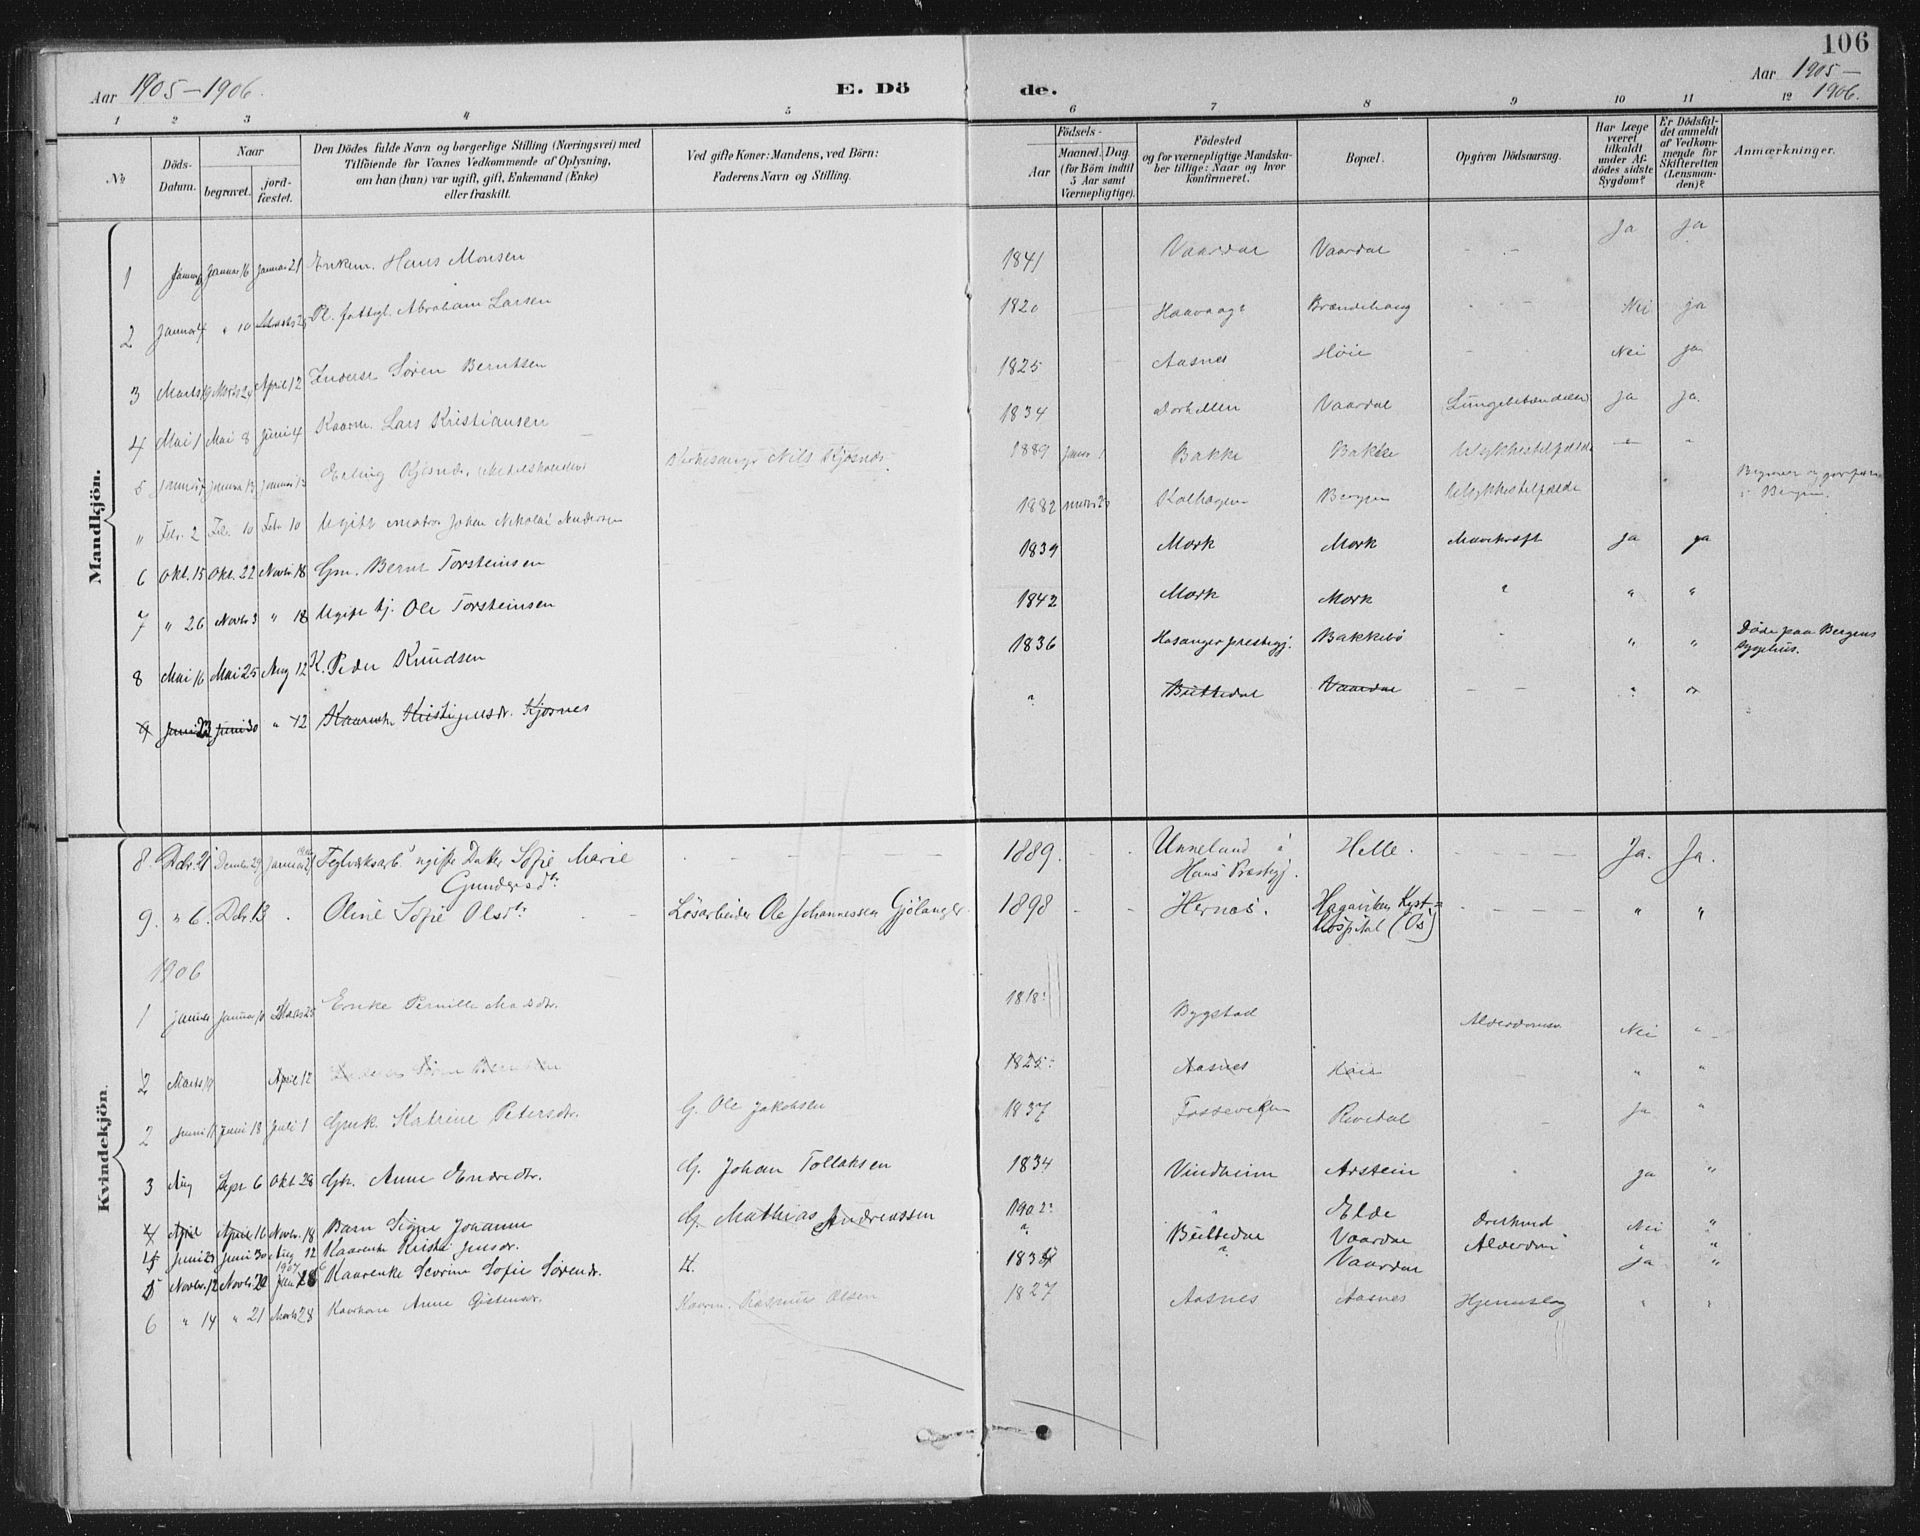 106
Aar 1905-1906.
E. Dö
de.
Aar 1905-1906.
1 2 3 4 5 6 7 8 9 10 11 12
No
Döds-Datum.
Naar
begravet.
jord-fæstet.
Den Dödes fulde Navn og borgerlige Stilling (Næringsvei) med
Tilföiende for Voxnes Vedkommende af Oplysning,
om han (hun) var ugift, gift, Enkemand (Enke)
eller fraskilt.
Ved gifte Koner: Mandens, ved Börn:
Faderens Navn og Stilling.
Födsels-
Aar
Maaned. Dag.
(for Börn indtil
5 Aar samt
Værnepligtige).
Födested
og for værnepligtige Mandska-
ber tillige: Naar og hvor
konfirmeret.
Bopæl.
Opgiven Dödsaarsag.
Har Læge
været
tilkaldt
under Af-
dödes sidste
Sygdom?
Er Dödsfal-
det anmeldt
af Vedkom-
mende for
Skifteretten
(Lensman-
den)?
Anmærkninger.
Mandkjön.
1 Januar 16 Januar 21 Enkem. Hans Monsen 1841 Vaardal Vaardal - - Ja Ja
2 Januar 4 " 10 Marts 25 Pl. fattigl. Abraham Larsen 1820 Brændehaug Nei ja
3 Marts 19 Marts 24 April 12 Inderst Sören Berntsen 1825 Aasnes Höie - Nei ja
4 Mai 1 Mai 8 Juni 4 Kaarm. Lars Kristiansen 1834 Vaardal Lungebetændelse Ja Ja
5 Januar 13 Januar 13 Erling Kjosnes Kirkesanger Nils Kjosnes 1889 Janr 1 Bakke Bakke Ulykkestilfælde - "
" Febr. 2 Feb. 10 Febr 10 Ugift matros Johan Nikolai Andersen 1882 Bergen Ulykkestilfælde
Bergen.
6 Okt. 15 Okt. 22 Novbr 18 Gm. Bernt Torsteinsen 1839 Mork Mork Mavekræft ja ja
7 " 26 Novbr 3 " 18 Ugift tj. Ole Torsteinsen 1842 Mork Mork " " "
8 Mai 16 Mai 25 Aug 12 K. Peder Knudsen 1836 Hosanger prestegj. Bakkebö " " Döde paa Bergens
sygehus.
9 Juni 23 Juni 30 " 12 Kaarenke Kjosnes " Buttedal Vaardal - - " "
Kvindekjön.
8. Dcbr. 21 Decmber 29 Januar Teglværksarb. ugifte Datter Sofie Marie
Gundersdtr 1889. Unneland i
Haus Præstegj. Helle. Ja. Ja.
9. " 6. Dcbr. 13 Oline Sofie Olsdtr Lösarbeider Ole Johannessen Gjölanger. 1898 Hernes. Hagaviken Kyst=
hospital (Os) " "
1906
1 Januar Januar 10 Marts 25 Enke Pernille Madsdtr. 1818 Bygstad Alderdomsv. Nei "
2 Marts 19 April 12 Sören Berntsen 1825 Aasnes Höie " "
2 Juni 11 Juni 18 Juli 1 Gmk. Katrine Petersdtr. G. Ole Jakobsen 1837 Fosseviken Rivedal - Ja "
3 Aug Sept 6 Okt 28 Gk. Anne Endredtr. G. Johan Tollaksen 1834 Vindheim Arstein " ja "
4 April April 16 Novbr. 18 Barn Signe Johanne G. Mathias Andreassen 1902 " Elde Nei "
4 Juni 23 Juni 30 Aug 12 Kaarenke Kristi Jensdr. " Buttedal Vaardal Alderdom " "
5 Novbr. 12 Novbr 20 1907 Kaarenke Severine Sofie Sörendr. 4. 1834 " Vaardal ja "
6 " 14 " 21 Marts 28 Kaarkone Anne Kaarm. Rasmus Olsen 1827 Aasnes Aasnes Hjerneslag " "